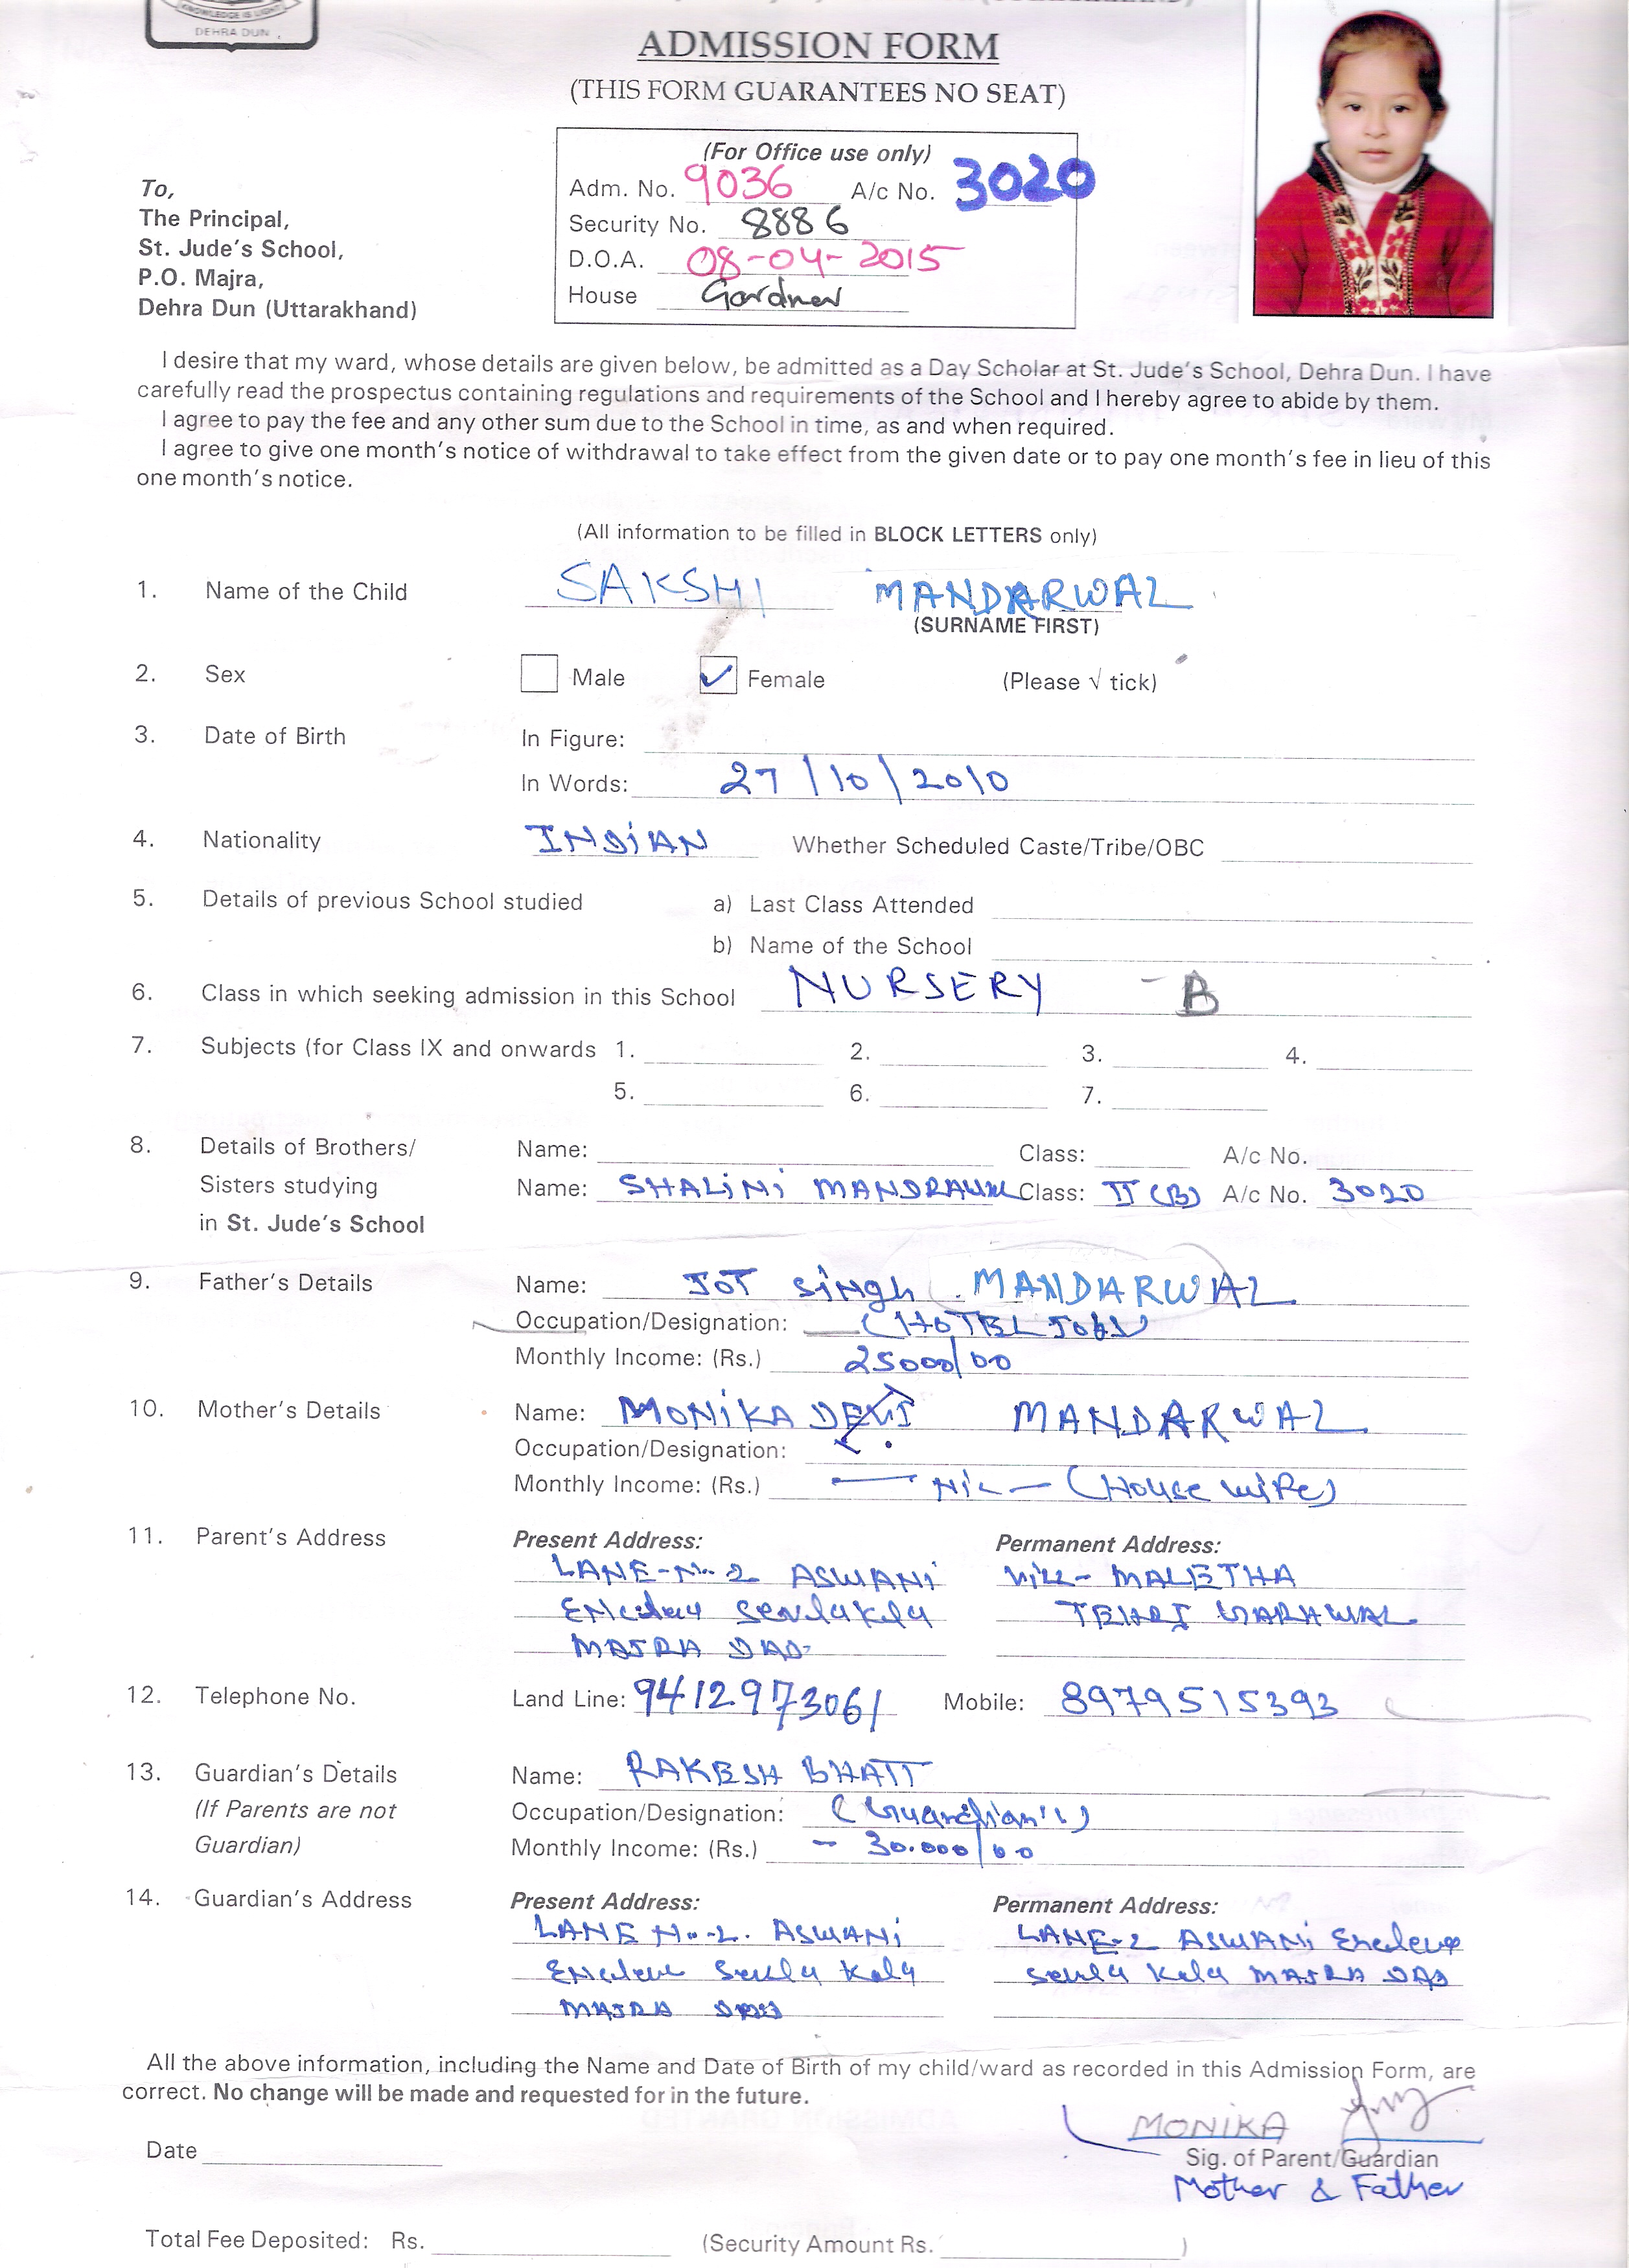 KNOWLEDGE IS LIGHT
DEHRA DUN
ADMISSION FORM
(THIS FORM GUARANTEES NO SEAT)
(For Office use only)
Adm. No. 9036 A/c No. 3020
Security No. 8886
D.O.A. 08-04-2015
House Gardner
To,
The Principal,
St. Jude's School,
P.O. Majra,
Dehra Dun (Uttarakhand)
I desire that my ward, whose details are given below, be admitted as a Day Scholar at St. Jude's School, Dehra Dun. I have
carefully read the prospectus containing regulations and requirements of the School and I hereby agree to abide by them.
I agree to pay the fee and any other sum due to the School in time, as and when required.
I agree to give one month's notice of withdrawal to take effect from the given date or to pay one month's fee in lieu of this
one month's notice.
(All information to be filled in BLOCK LETTERS only)
1. Name of the Child SAKSHI MANDARWAL
(SURNAME FIRST)
2. Sex Male ✓ Female (Please √ tick)
3. Date of Birth In Figure:
In Words: 27/10/2010
4. Nationality INDiAN Whether Scheduled Caste/Tribe/OBC
5. Details of previous School studied a) Last Class Attended
b) Name of the School
6. Class in which seeking admission in this School NURSERY - B
7. Subjects (for Class IX and onwards 1. 2. 3. 4.
5. 6. 7.
8. Details of Brothers/ Name: Class: A/c No.
Sisters studying Name: SHALiNi Class: II (B) A/c No. 3020
in St. Jude's School
9. Father's Details Name: JOT Singh MANDARWAL
Occupation/Designation: (HOTEL Job)
Monthly Income: (Rs.) 25000/00
10. Mother's Details Name: MONiKA DEVI MANDARWAL
Occupation/Designation:
Monthly Income: (Rs.) — NiL — (House wife)
11. Parent's Address Present Address: Permanent Address:
LANE-No. 2 ASWANi Vill- MALETHA
Enclave Sewla Kala TEHRI GARHWAL
MAJRA D.DN
12. Telephone No. Land Line: 9412973061 Mobile: 8979515393
13. Guardian's Details Name: RAKESH BHATT
(If Parents are not Occupation/Designation: (Guardian's)
Guardian) Monthly Income: (Rs.) - 30.000/00
14. Guardian's Address Present Address: Permanent Address:
LANE No.-2. ASWANi LANE-2 ASWANi Enclave
Enclave Sewla Kala Sewla Kala MAJRA DDN
MAJRA DDN
All the above information, including the Name and Date of Birth of my child/ward as recorded in this Admission Form, are
correct. No change will be made and requested for in the future.
MONIKA
Date Sig. of Parent/Guardian
Mother & Father
Total Fee Deposited: Rs. (Security Amount Rs. )